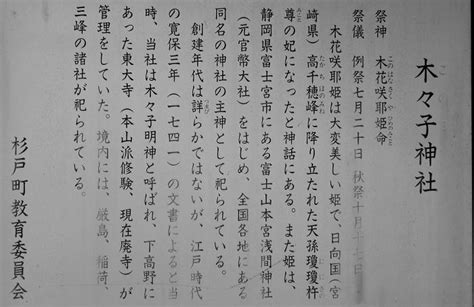 木々子神社
祭神　木花咲耶姫命
祭儀　例祭七月二十日　秋祭十月十七日
木花咲耶姫は大変美しい姫で、日向国(宮
崎県)高千穂峰に降り立たれた天孫瓊瓊杵
尊の妃になったと神話にある。また姫は、
静岡県富士宮市にある富士山本宮浅間神社
(元官幣大社)をはじめ、全国各地にある
同名の神社の主神として祀られている。
創建年代は詳らかではないが、江戸時代
の寛保三年(一七四一)の文書によると当
時、当社は木々子明神と呼ばれ、下高野に
あった東大寺(本山派修験、現在廃寺)が
管理をしていた。境内には、厳島、稲荷、
三峰の諸社が祀られている。
杉戸町教育委員会